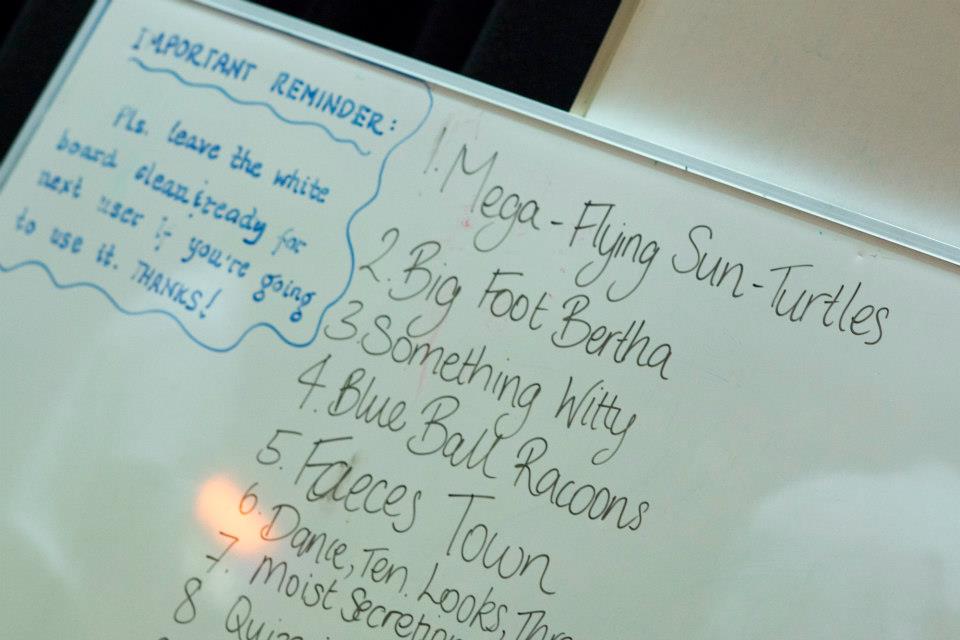 IMPORTANT REMINDER:
Pls. leave the white
board clean/ready for
next user if you're going
to use it. THANKS!
1. Mega-Flying Sun-Turtles
2. Big Foot Bertha
3. Something Witty
4. Blue Ball Racoons
5. Faeces Town
6. Dance, Ten. Looks, Thre
7. Moist Secretion
8 Quizz